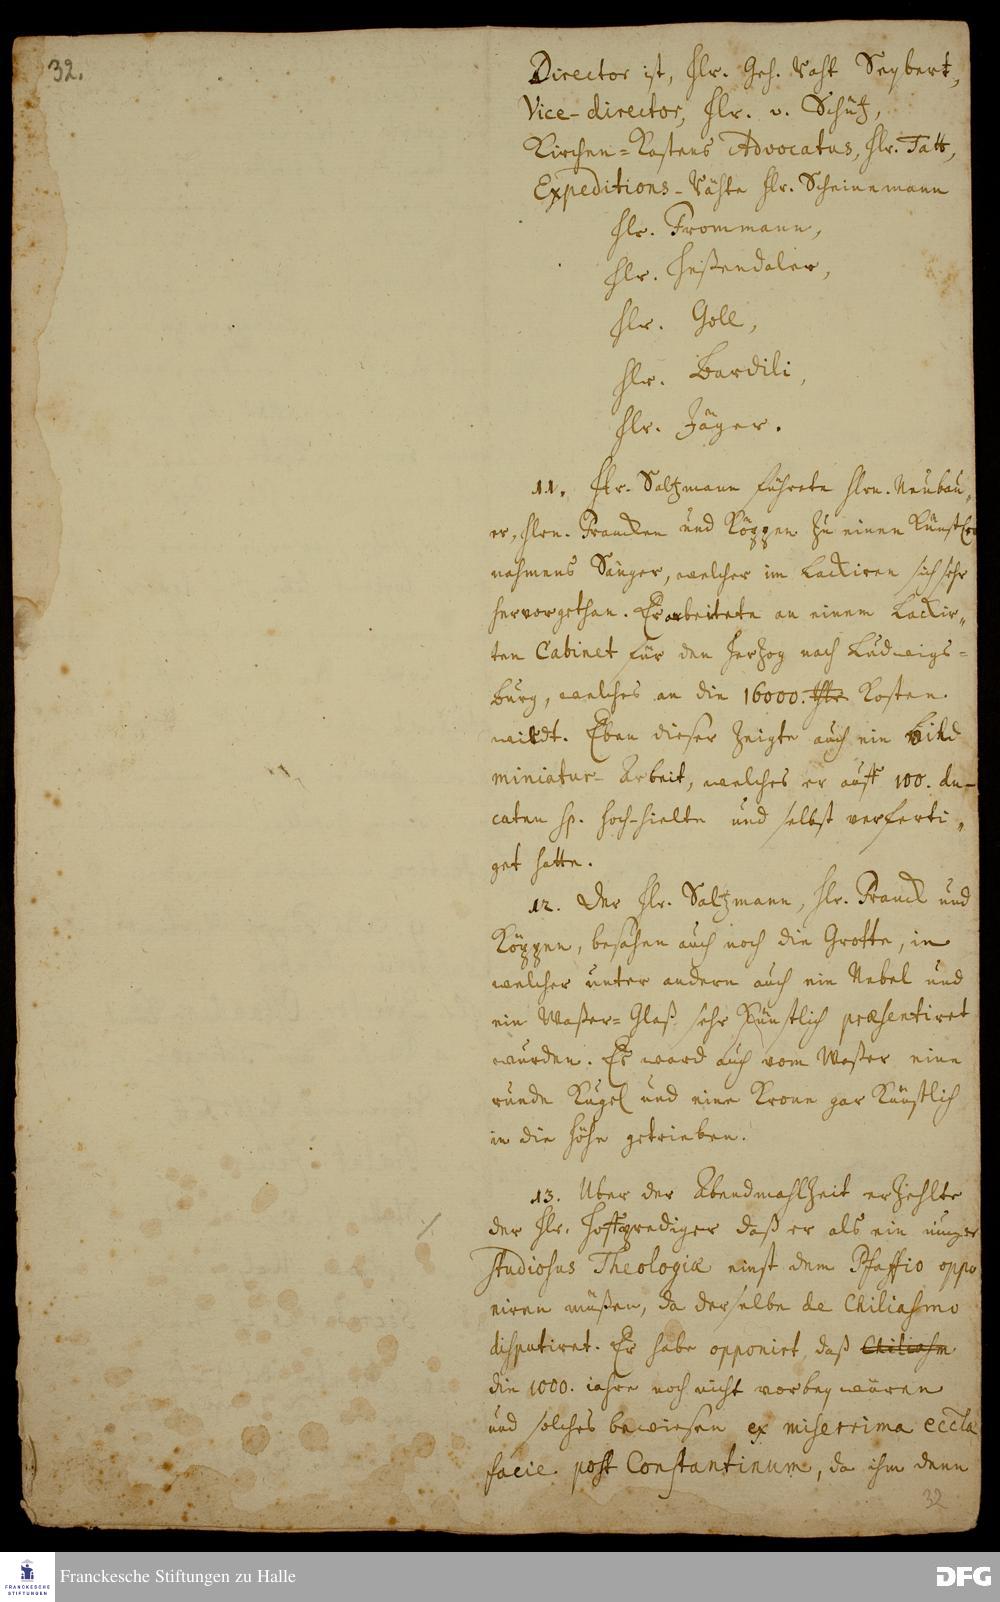 32.
Director ist, Hr. Geh. Raht Seybert,
Vice-director, Hr. v. Schütz,
Kirchen-Kastens Advocatus, Hr. Tatt,
Expeditions-Rähte Hr. Scheinemann
Hr. Frommann,
Hr. Heßendaler,
Hr. Goll,
Hr. Bardili,
Hr. Jäger.
11. Hr. Saltzmann führete Hrn. Neubau„
er, Hrn. Francken und Köppen zu einen Künstler
nahmens Sänger, welcher im Lackiren sich sehr
hervorgethan. Er arbeitete an einem Lackir„
ten Cabinet für den Herzog nach Ludwigs-
burg, welches an die 16000. thlr Kosten
wirdt. Eben dieser zeigte auch ein Bild
miniatur-Arbeit, welches er auff 100. du-
caten sp. hoch-hielte und selbst verferti„
get hatte.
12. Der Hr. Saltzmann, Hr. Franck und
Köppen, besahen auch noch die Grotte, in
welcher unter andern auch ein Nebel und
ein Waßer-Glaß sehr Künstlich præsentiret
wurden. Es ward auch vom Waßer eine
runde Kugel und eine Krone gar Künstlich
in die höhe getrieben.
13. Uber der Abendmahlzeit erziehlte
der Hr. Hoffprediger daß er als ein iunger
studiosus Theologiæ einst dem Pfaffio oppo
niren müßen, da derselbe de Chiliasmo
disputiret. Er habe opponirt, daß Chiliasm
die 1000. iahre noch nicht vorbey wären
und solches bewiesen ex miserrima eccla
facie post Constantinum, da ihm denn
32
Franckesche Stiftungen zu Halle
FRANCKESCHE
STIFTUNGEN
DFG